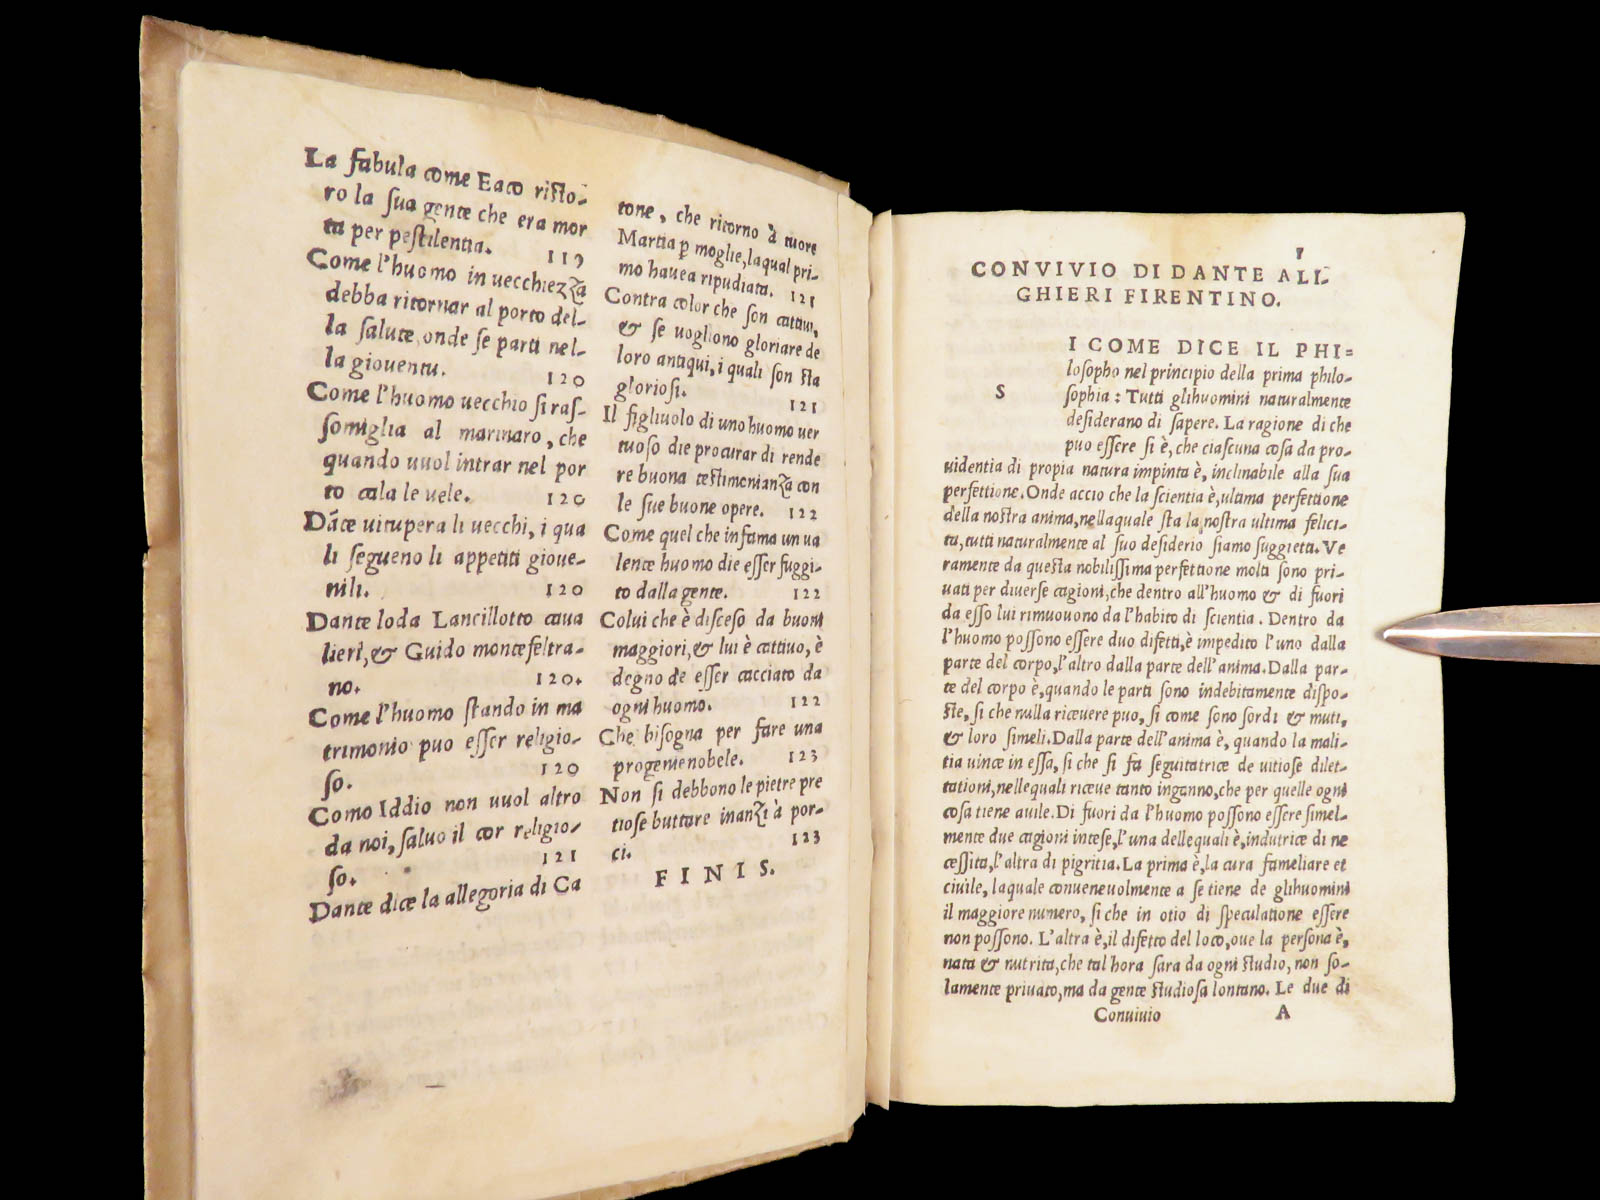 La fabula come Eaco risto-
ro la sua gente che era mor
ta per pestilentia. 119
Come l'huomo in uecchiezza
debba ritornar al porto del-
la salute, onde se parti nel-
la giouentu. 120
Come l'huomo uecchio si ras-
somiglia al marinaro, che
quando uuol intrar nel por
to cala le uele. 120
Dāte uitupera li uecchi, i qua
li segueno li appetiti gioue-
nili. 120
Dante loda Lancillotto caua
lieri, & Guido montefeltra-
no. 120.
Come l'huomo stando in ma
trimonio puo esser religio-
so. 120
Como Iddio non uuol altro
da noi, saluo il cor religio-
so. 121
Dante dice la allegoria di Ca
tone, che ritorno à tuore
Martia p̱ moglie, laqual pri-
mo hauea ripudiata. 121
Contra color che son cattiui,
& se uogliono gloriare de
loro antiqui, i quali son sta
gloriosi. 121
Il figliuolo di uno huomo uer
tuoso die procurar di rende
re buona testimonianza con
le sue buone opere. 122
Come quel che infama un ua
lente huomo die esser fuggi-
to dalla gente. 122
Colui che è disceso da buoni
maggiori, & lui è cattiuo, è
degno de esser cacciato da
ogni huomo. 122
Che bisogna per fare una
progenie nobele. 123
Non si debbono le pietre pre
tiose buttare inanzi à por-
ci. 123
FINIS.
1
CONVIVIO DI DANTE ALI-
GHIERI FIRENTINO.
S
I COME DICE IL PHI=
losopho nel principio della prima philo-
sophia: Tutti glihuomini naturalmente
desiderano di sapere. La ragione di che
puo essere si è, che ciascuna cosa da pro-
uidentia di propia natura impinta è, inclinabile alla sua
perfettione. Onde accio che la scientia è, ultima perfettione
della nostra anima, nellaquale sta la nostra ultima felici-
ta, tutti naturalmente al suo desiderio siamo suggietti. Ve
ramente da questa nobilissima perfettione molti sono pri-
uati per diuerse cagioni, che dentro all'huomo & di fuori
da esso lui rimuouono da l'habito di scientia. Dentro da
l'huomo possono essere duo difetti, è impedito l'uno dalla
parte del corpo, l'altro dalla parte dell'anima. Dalla par-
te del corpo è, quando le parti sono indebitamente dispo-
ste, si che nulla riceuere puo, si come sono sordi & muti,
& loro simeli. Dalla parte dell'anima è, quando la mali-
tia uince in essa, si che si fa seguitatrice de uitiose dilet-
tationi, nellequali riceue tanto inganno, che per quelle ogni
cosa tiene a uile. Di fuori da l'huomo possono essere simel-
mente due cagioni intese, l'una dellequali è, indutrice di ne
cessita, l'altra di pigritia. La prima è, la cura fameliare et
ciuile, laquale conueneuolmente a se tiene de glihuomini
il maggiore numero, si che in otio di speculatione essere
non possono. L'altra è, il difetto del loco, oue la persona è,
nata & nutrita, che tal hora sara da ogni studio, non so-
lamente priuato, ma da gente studiosa lontano. Le due di
Conuiuio A